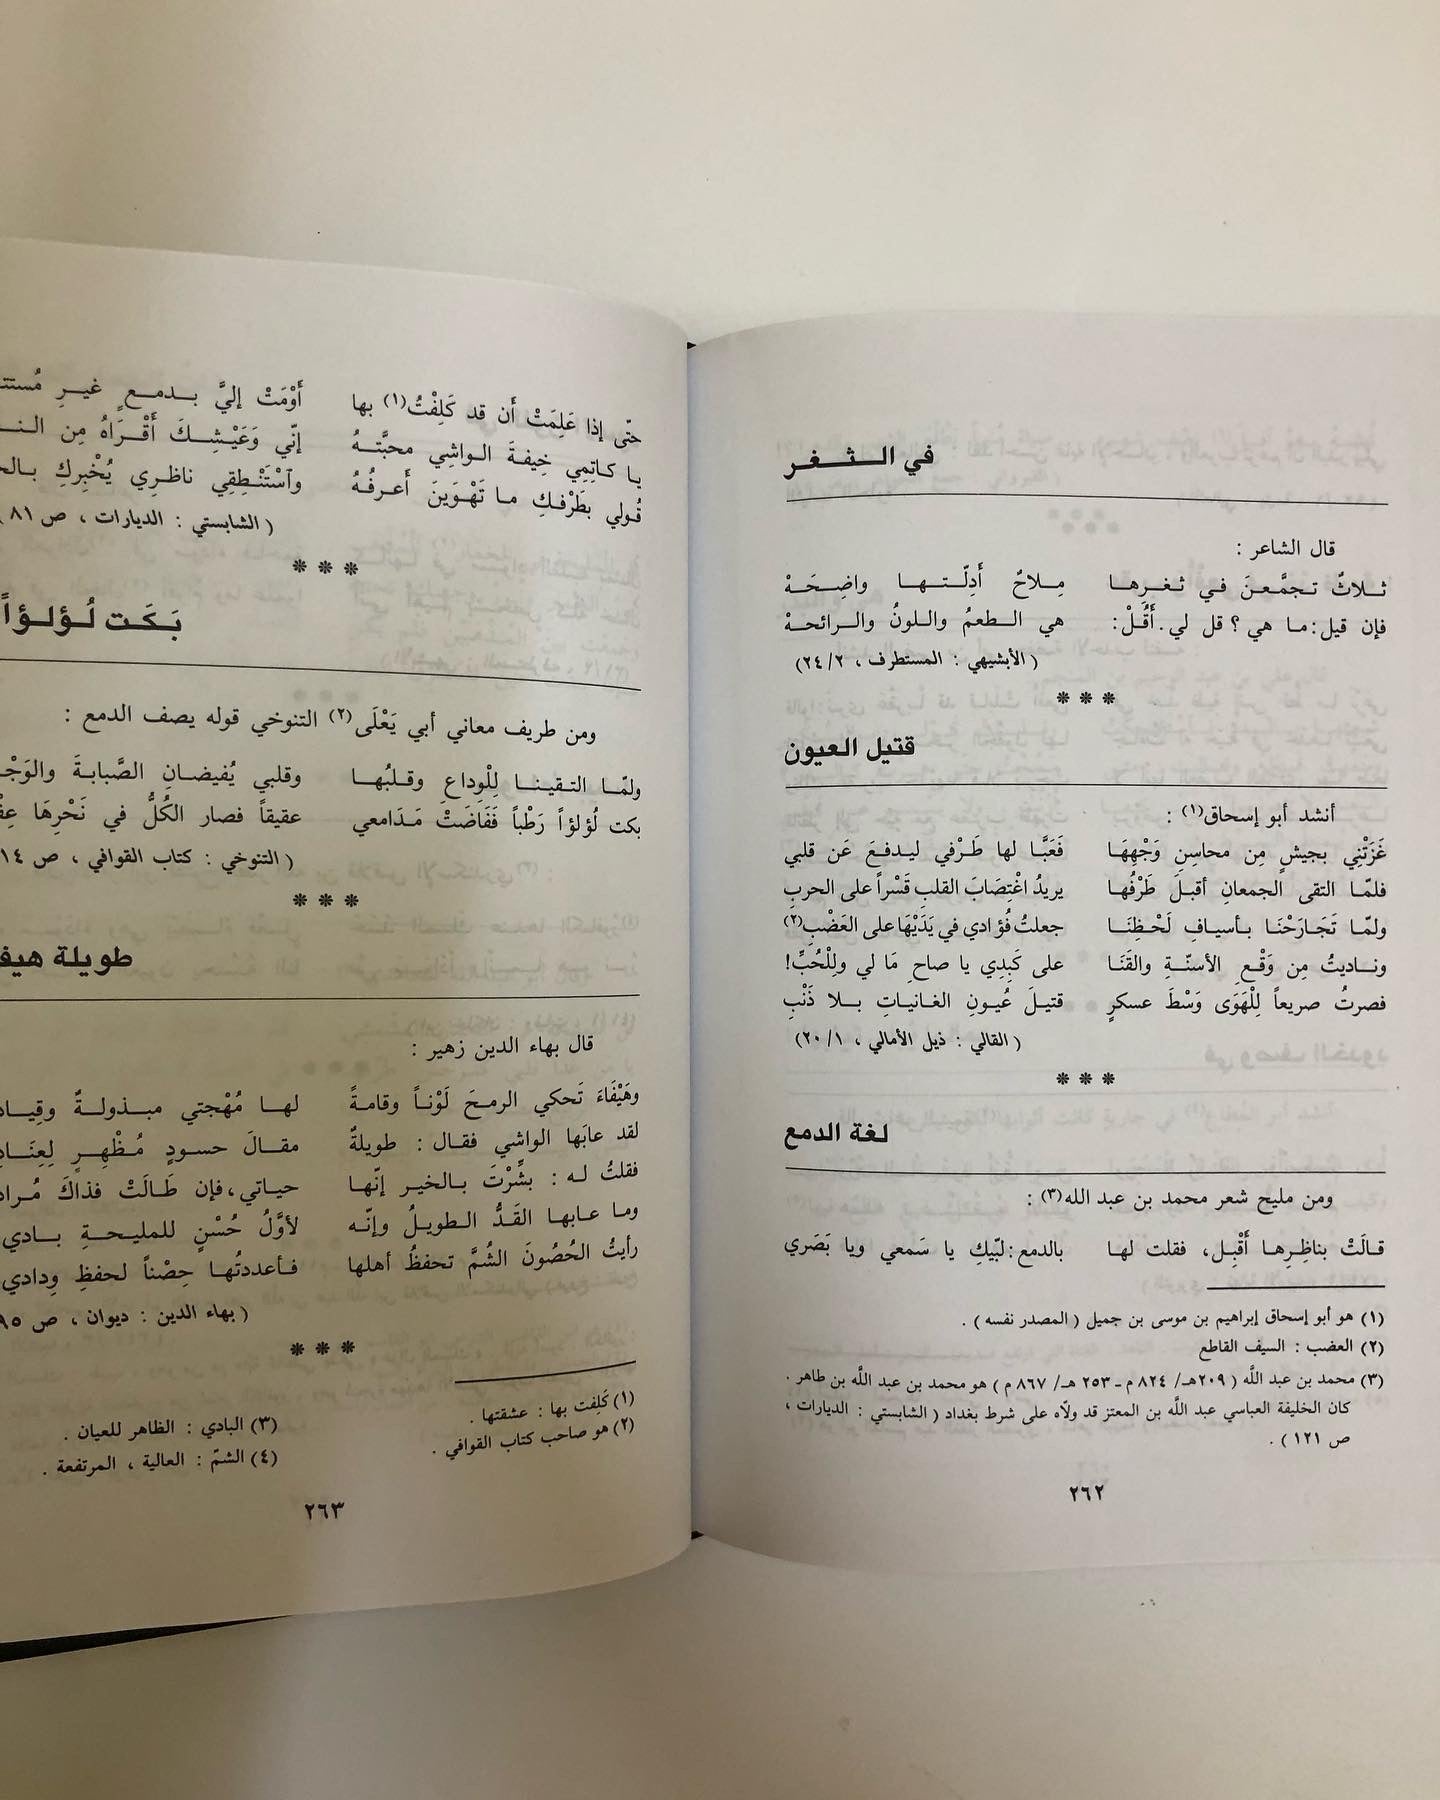 في الـثـغـر
قال الشاعر :
ثـلاثٌ تـجمَّـعنَ فـي ثـغـرهـا مِـلاحٌ أَدِلّـتـهـا واضِحَـهْ
فإن قيل: مـا هي ؟ قل لي. أَقُلْ: هي الـطعمُ واللـونُ والـرائحـهْ
( الأبشيهي : المستطرف ، ٢٤/٢)
***
قتيل العيون
أنشد أبو إسحاق(١) :
غَزَتْنِي بجيشٍ مِن محاسنِ وَجْهِهَا فَعَبَّـا لها طَـرْفي ليـدفعَ عَن قلبي
فلمّا التقى الجمعانِ أقبلَ طَرْفُها يريدُ اغْتِصَابَ القلبِ قَسْراً على الحربِ
ولمّـا تَجَارَحْنَـا بـأسيافِ لَحْظِنَـا جعلتُ فُؤادي في يَدَيْهَا على العَضْبِ(٢)
ونـاديتُ مِن وَقْـعِ الأسنّـةِ والقَنَـا على كَبِدِي يا صاحِ مَا لي ولِلْحُبِّ!
فصرتُ صريعاً لِلْهَوَى وَسْطَ عسكرٍ قتيلَ عُيـونِ الغـانيـاتِ بـلا ذَنْبِ
( القالي : ذيل الأمالي ، ٢٠/١)
***
لغة الدمع
ومن مليح شعر محمد بن عبد الله(٣) :
قـالَتْ بنـاظِرِهـا أَقْبِل، فقلت لهـا بالدمع: لبّيكِ يا سَمعي ويا بَصَري
(١) هو أبو إسحاق إبراهيم بن موسى بن جميل ( المصدر نفسه ) .
(٢) العضب : السيف القاطع
(٣) محمد بن عبد اللَّه ( ٢٠٩هـ/ ٨٢٤ م ـ ٢٥٣ هـ/ ٨٦٧ م ) هو محمد بن عبد اللَّه بن طاهر .
كان الخليفة العباسي عبد اللَّه بن المعتز قد ولاّه على شرط بغداد ( الشابستي : الديارات ،
ص ١٢١ ) .
٢٦٢
حتّى إذا عَلِمَتْ أَن قد كَلِفْتُ(١) بها أَوْمَتْ إليَّ بـدمـعٍ غيـرِ
يا كـاتِمِي خِيفةَ الـواشِي محبَّتـهُ إنّي وَعَيْـشِـكَ أَقْـرَاهُ مِن
قُولي بطَرْفكِ مـا تَهْوَينَ أَعـرفُهُ وآسْتَنْطِقِي ناظِرِي يُخْبِركِ
( الشابستي : الديارات ، ص ٨١ )
***
بَـكَـت لُـؤلـؤاً
ومن طريف معاني أبي يَعْلَى(٢) التنوخي قوله يصف الدمع :
ولمّـا التـقينـا لِلْوِداعِ وقـلبُهـا وقلبي يُفيضـانِ الصَّبابـةَ
بكت لُؤلؤاً رَطْباً فَفَاضَتْ مَدَامعي عقيقاً فصار الكُلُّ في نَحْرِهَا
( التنوخي : كتاب القوافي ، ص
***
طويلة
قال بهاء الدين زهير :
وهَيْفَاءَ تَحكي الرمحَ لَوْنـاً وقامـةً لهـا مُهْجتي مبـذولـةٌ
لقد عابَها الواشي فقال : طويلةٌ مقـالَ حسـودٍ مُـظْهِـرٍ
فقلتُ لـه : بشِّرْتَ بـالخير إنّهـا حياتي، فإن طَـالَتْ فذاكَ
وما عـابهـا القَـدُّ الـطويـلُ وإنّـه لأوَّلُ حُسْنٍ للمليحـةِ بـادي
رأيتُ الحُصُونَ الشُمَّ تحفظُ أهلها فـأعددتُهـا حِصْنـاً لحفظِ وِدادي
( بهاء الدين : ديوان ، ص
***
(١) كَلِفت بها : عشقتها .
(٢) هو صاحب كتاب القوافي .
(٣) البادي : الظاهر للعيان .
(٤) الشمّ : العالية ، المرتفعة .
٢٦٣